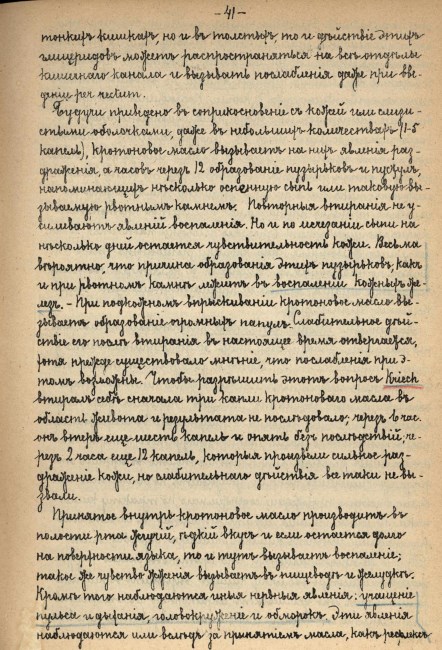 - 41 -
тонкихъ кишкахъ, но и въ толстыхъ, то и дѣйствіе этихъ
глицеридовъ можетъ распространяться на всѣ отдѣлы
кишечнаго канала и вызывать послабленія даже при вве-
деніи per rectum.
Будучи приведено въ соприкосновеніе съ кожей или слизи-
стыми оболочками, даже въ небольшихъ количествахъ (1-5
капель), кротоновое масло вызываетъ на нихъ явленія раз-
драженія, а часовъ черезъ 12 образованіе пузырьковъ и пустулъ,
напоминающихъ нѣсколько оспенную сыпь или таковую вы-
зываемую рвотнымъ камнемъ. Повторныя втиранія не у-
силиваютъ явленій воспаленія. Но и по исчезаніи сыпи на
нѣсколько дней остается чувствительность кожи. Весьма
вѣроятно, что причина образованія этихъ пузырьковъ, какъ
и при рвотномъ камнѣ лежитъ въ воспаленіи кожныхъ же-
лезъ. - При подкожномъ впрыскиваніи кротоновое масло вы-
зываетъ образованіе огромныхъ папулъ. Слабительное дѣй-
ствіе его послѣ втиранія въ настоящее время отвергается,
хотя прежде существовало мнѣніе, что послабленія при э-
томъ возможны. Чтобы разрѣшить этотъ вопросъ Kriech
втиралъ себѣ сначала три капли кротоноваго масла въ
области живота и результата не послѣдовало; черезъ 6 час.
онъ втеръ еще шесть капель и опять безъ послѣдствій, че-
резъ 2 часа еще 12 капель, которыя произвели сильное раз-
драженіе кожи, но слабительнаго дѣйствія все таки не вы-
звали.
Принятое внутрь кротоновое масло производитъ въ
полости рта жгучій, ѣдкій вкусъ и если остается долго
на поверхности языка, то и тутъ вызываетъ воспаленіе;
такое же чувство жженія вызываетъ въ пищеводѣ и желудкѣ.
Кромѣ того наблюдаются иныя нервныя явленія: учащеніе
пульса и дыханія, головокруженіе и обморокъ. Эти явленія
наблюдаются или вслѣдъ за принятіемъ масла, какъ рефлексъ